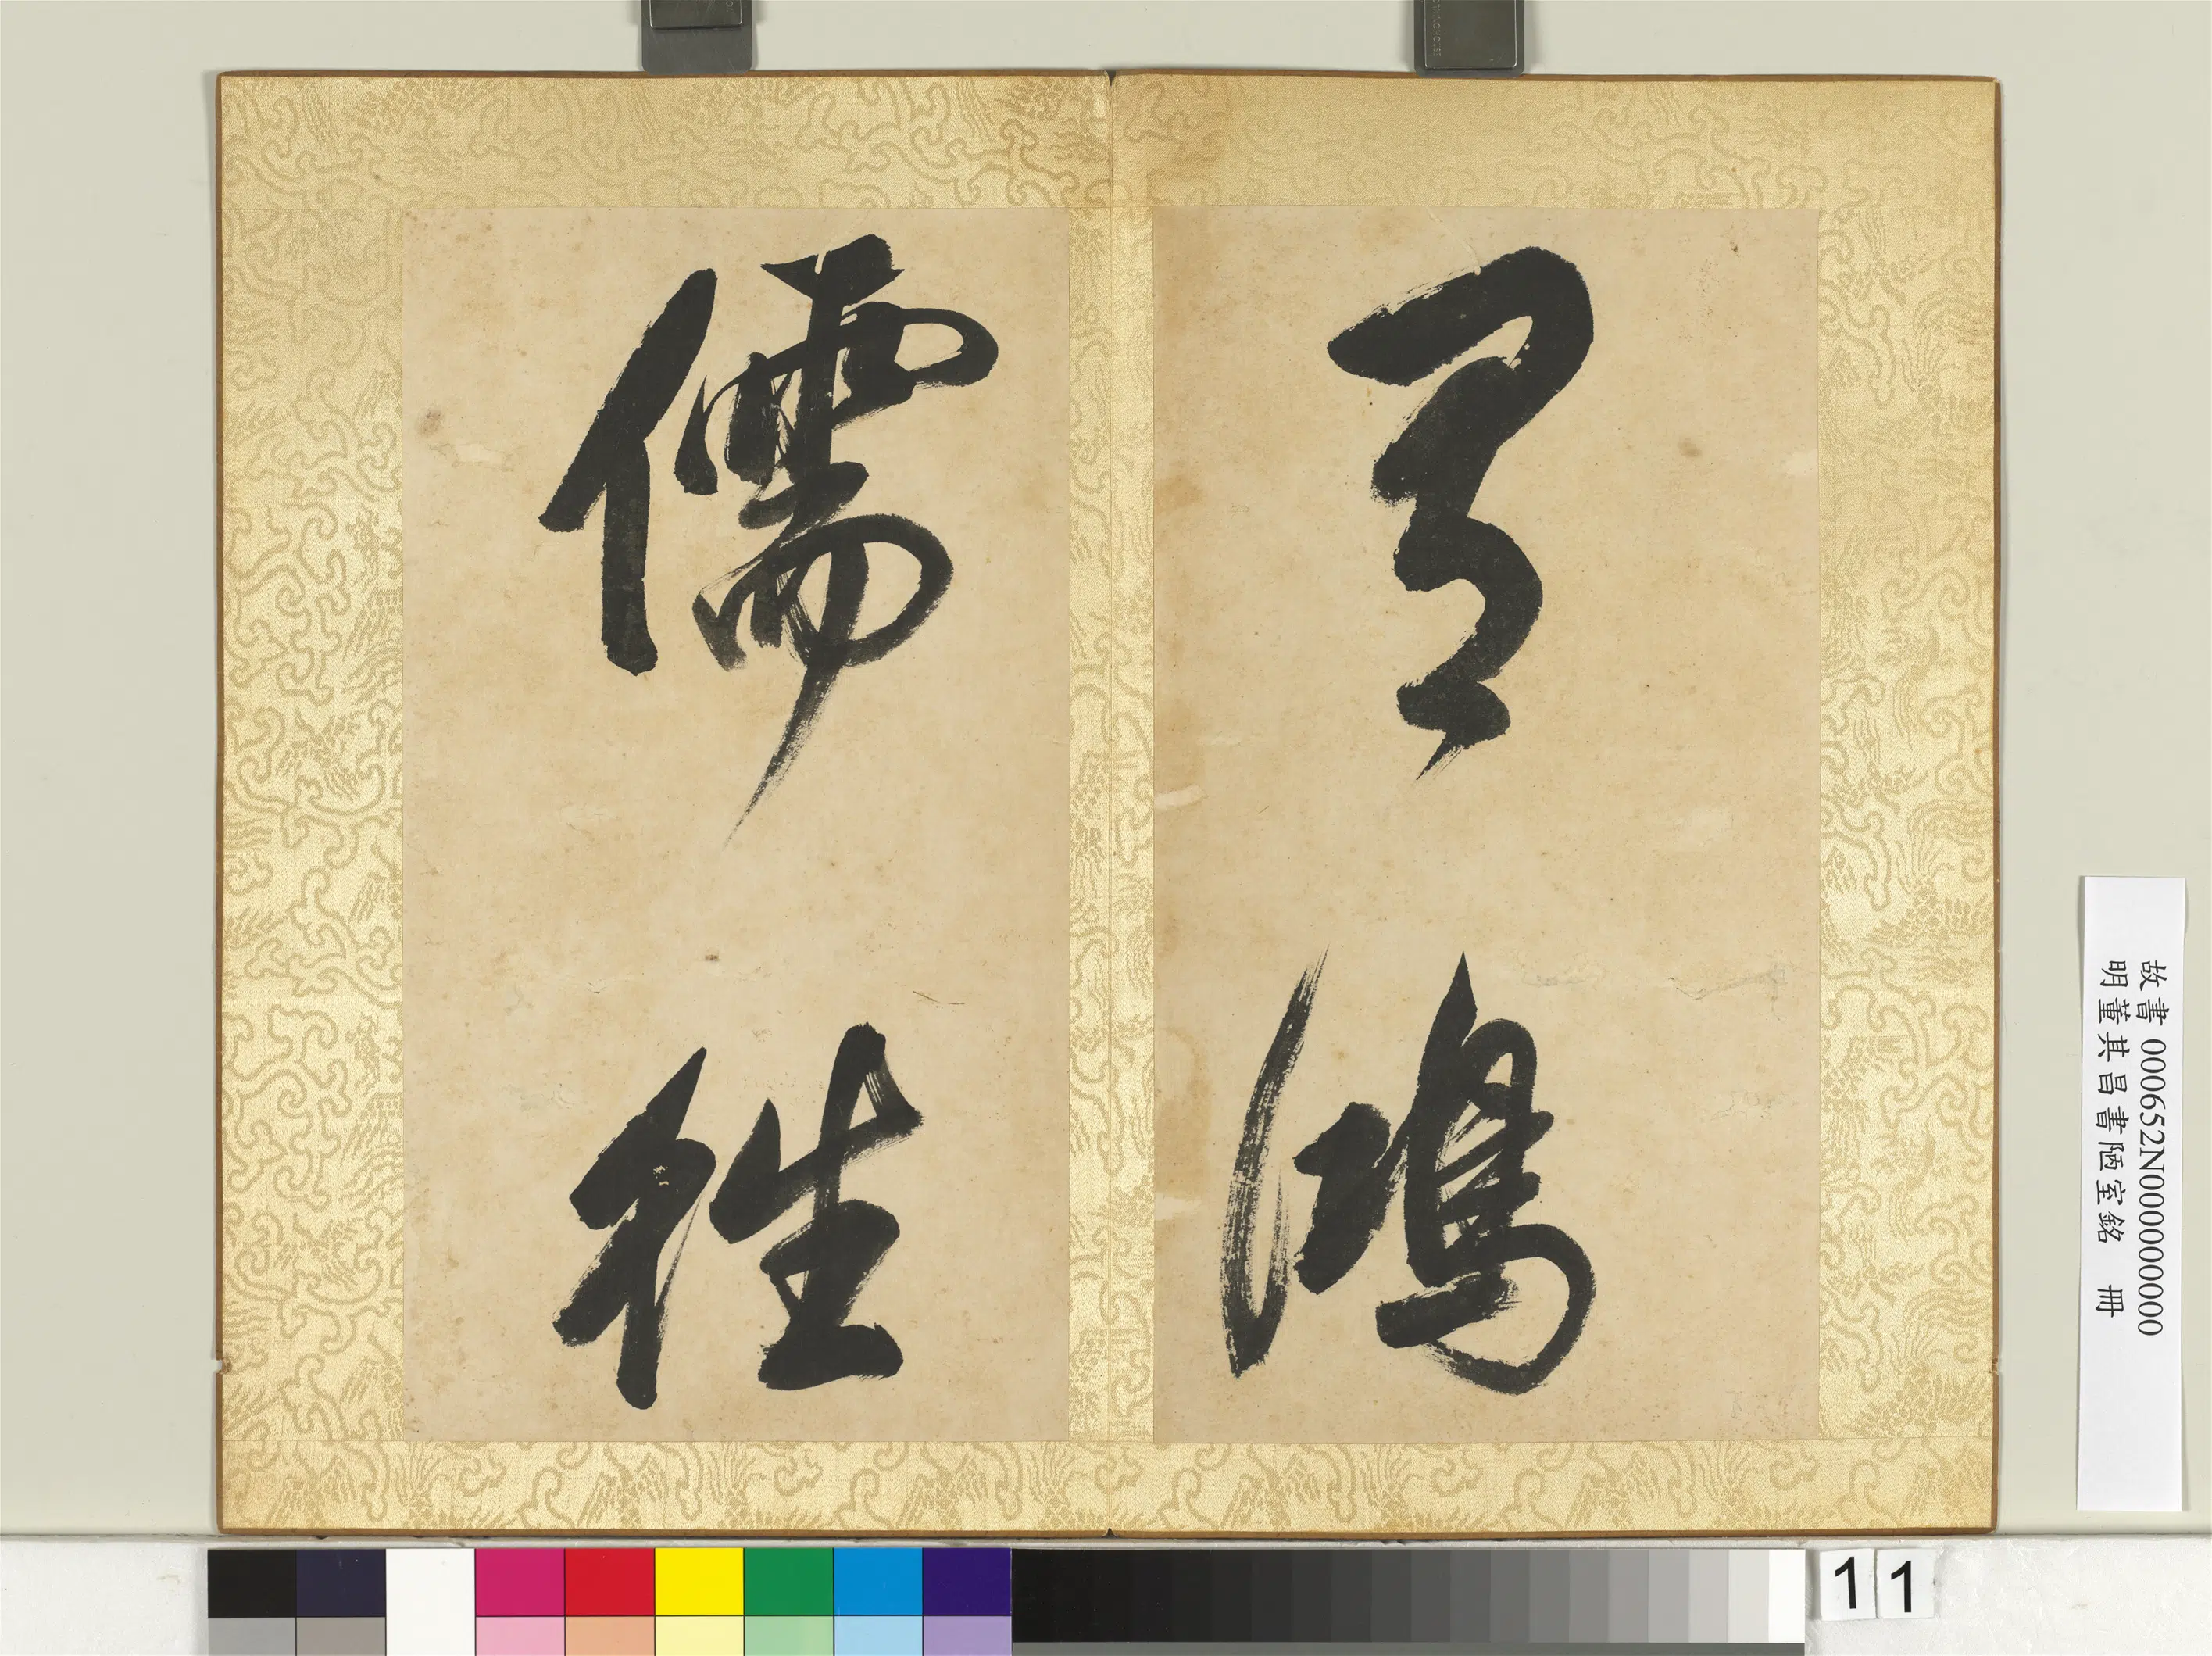 有鴻
儒往
故書 000652N000000000
明董其昌書陋室銘 冊
11